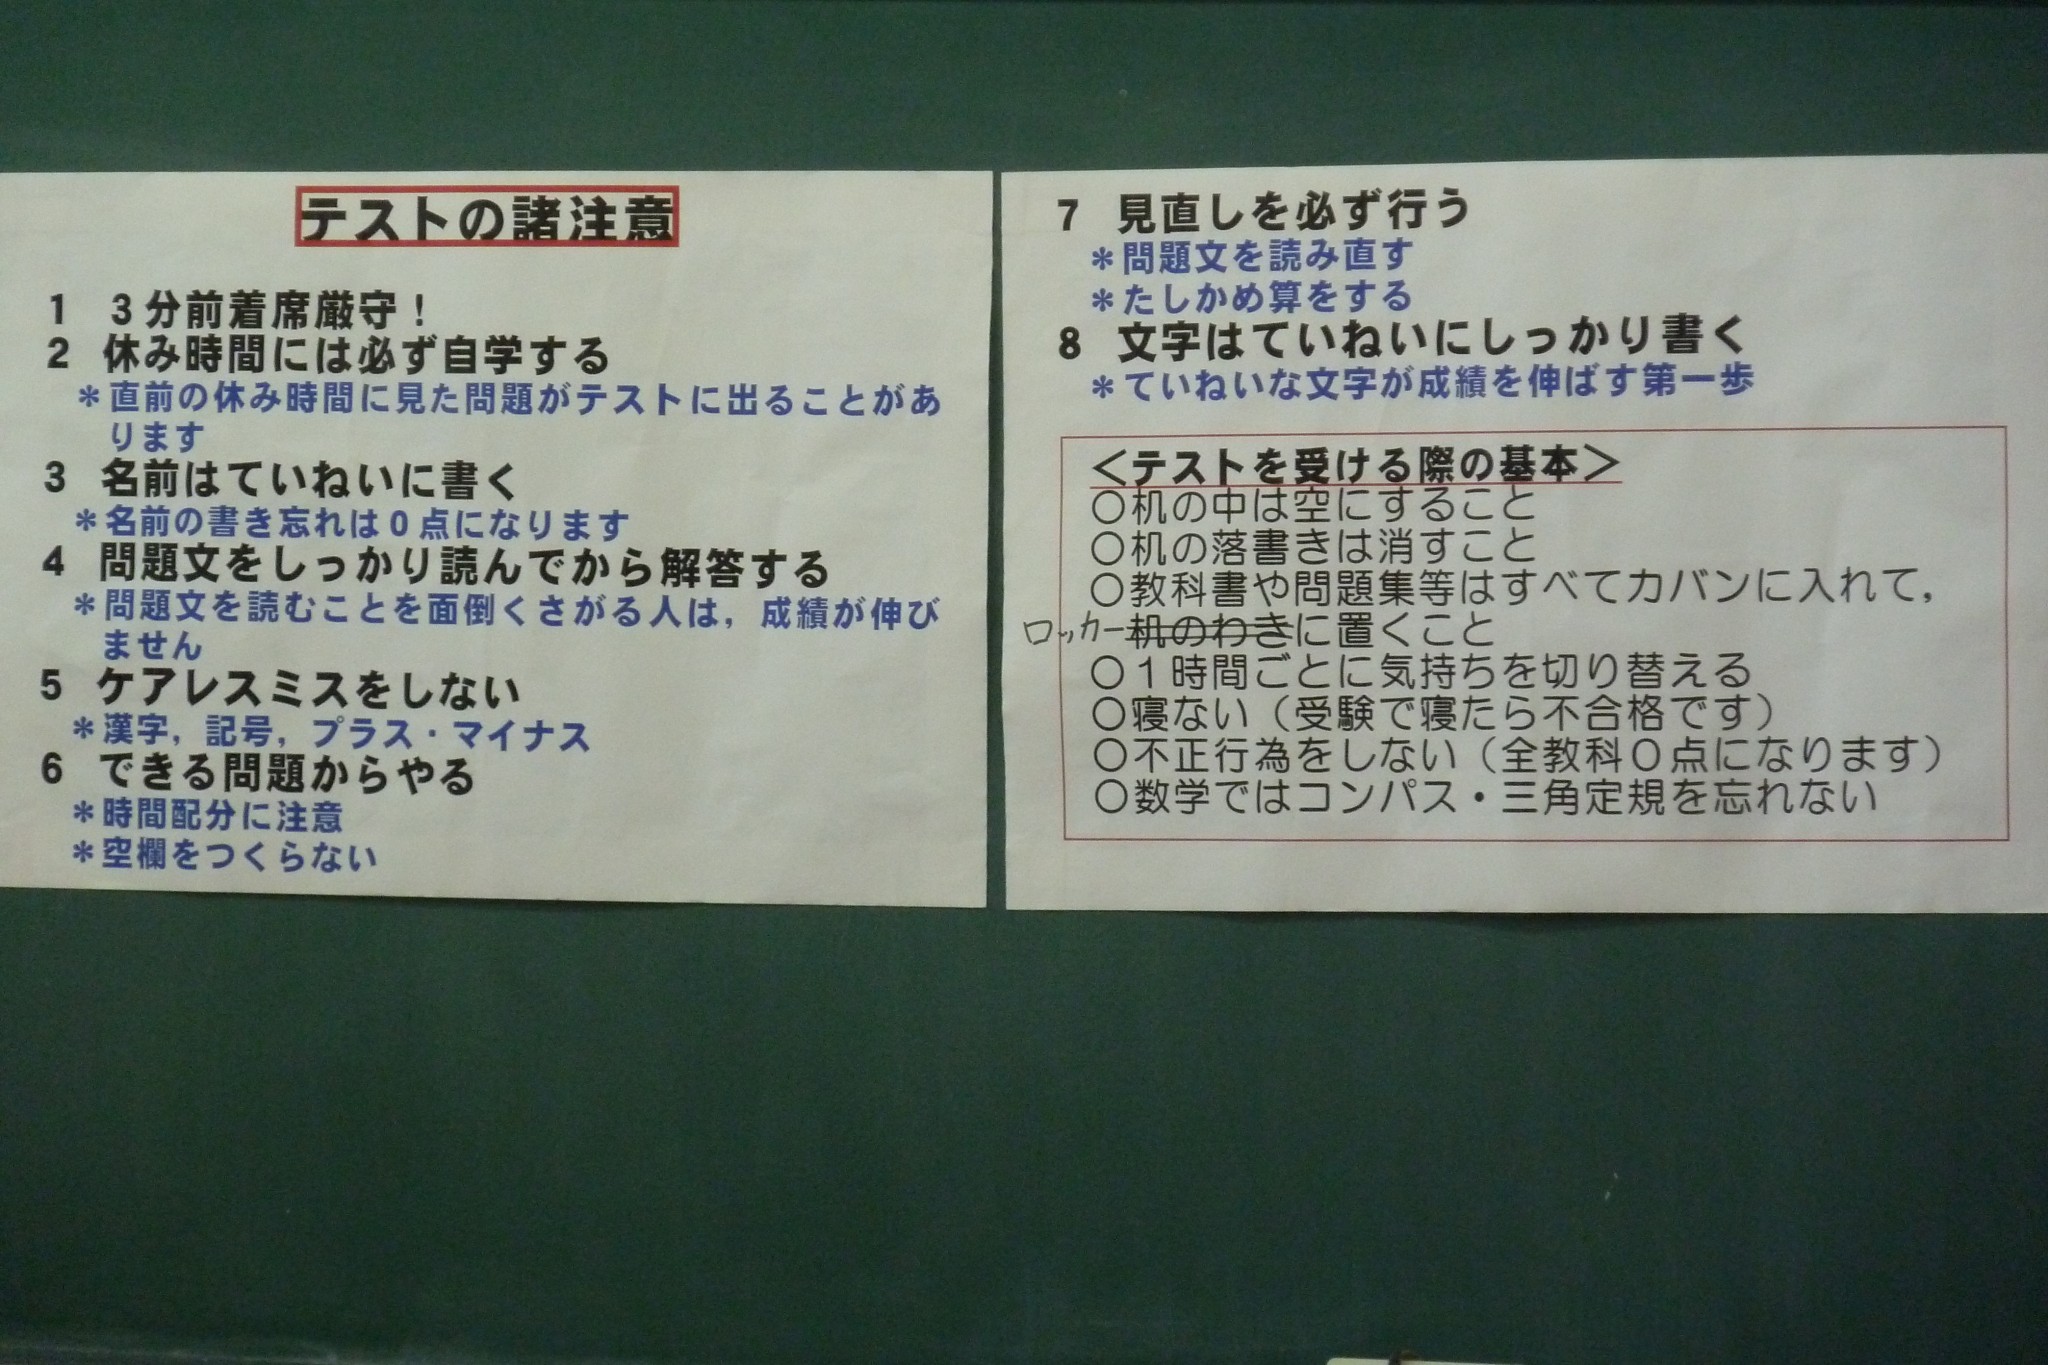 テストの諸注意
1 3分前着席厳守!
2 休み時間には必ず自学する
*直前の休み時間に見た問題がテストに出ることがあ
ります
3 名前はていねいに書く
*名前の書き忘れは0点になります
4 問題文をしっかり読んでから解答する
*問題文を読むことを面倒くさがる人は,成績が伸び
ません
5 ケアレスミスをしない
*漢字,記号,プラス・マイナス
6 できる問題からやる
*時間配分に注意
*空欄をつくらない
7 見直しを必ず行う
*問題文を読み直す
*たしかめ算をする
8 文字はていねいにしっかり書く
*ていねいな文字が成績を伸ばす第一歩
<テストを受ける際の基本>
○机の中は空にすること
○机の落書きは消すこと
○教科書や問題集等はすべてカバンに入れて,
ロッカー机のわきに置くこと
○1時間ごとに気持ちを切り替える
○寝ない(受験で寝たら不合格です)
○不正行為をしない(全教科0点になります)
○数学ではコンパス・三角定規を忘れない